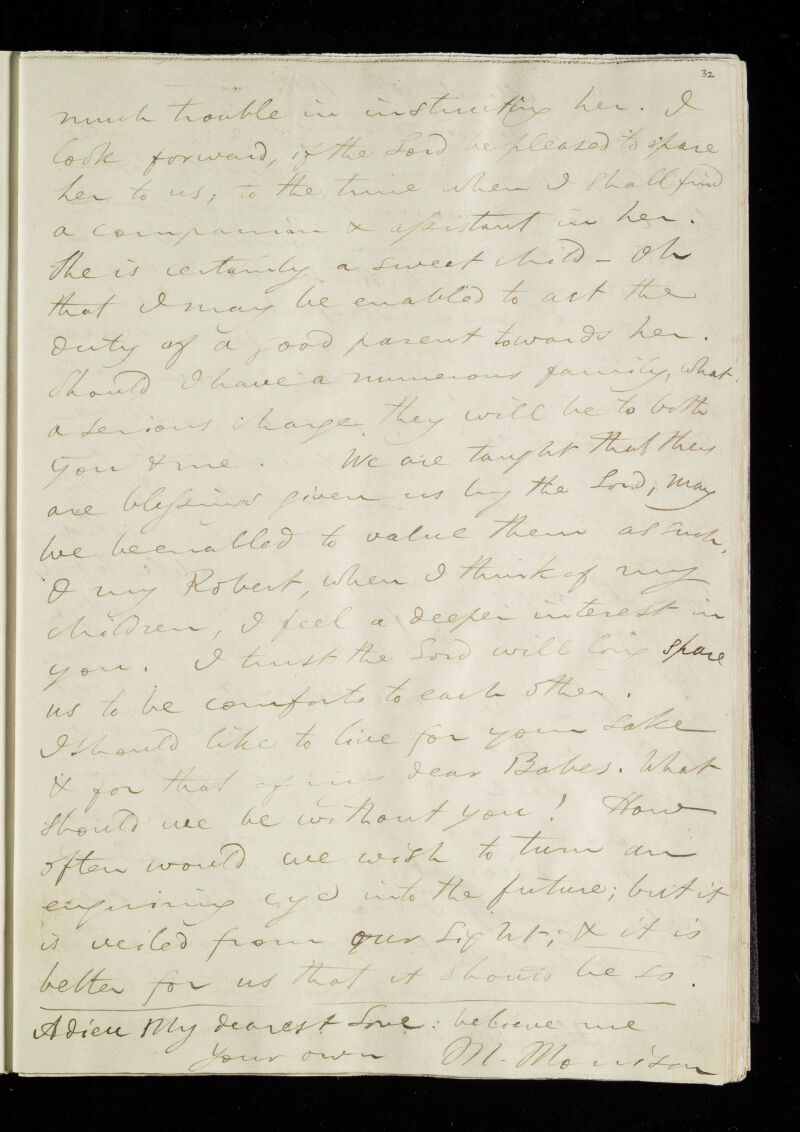 32
much trouble in instructing her. I
look forward, if the Lord be pleased to spare
her to us; to the time when I shall find
a companion & assistant in her.
She is certainly a sweet child - Oh
that I may be enabled to act the
duty of a good parent towards her.
Should I have a numerous family, what
a serious charge they will be to both
you & me. We are taught that they
are blessings given us by the Lord, may
we be enabled to value them as such.
O my Robert, when I think of my
children, I feel a deeper interest in
you. I trust the Lord will long spare
us to be comforts to each other.
I should like to live for your sake
& for that of my dear Babes. What
should we be without you! How
often would we wish to turn an
enquiring eye into the future; but it
is veiled from our sight; & it is
better for us that it should be so.
Adieu My dearest Love: believe me
your own M. Morrison